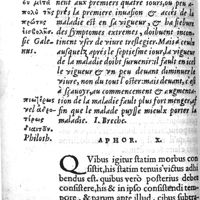 nent aux premiers quatre iours, ou peu a-
pres la premiere inuasion & accés de la
maladie est en sa vigueur, & ha ses
des symptomes extremes, doiuent incon-
tinent vser de viure tresleger. Mais ceux
ausquels, apres le septiesme iour, la vigueur
de la maladie doibt suruenir, il fault en icel-
le vigueur & vn peu deuant diminuer le
viure, non du tout l'oster: mais deuant, c'est
à sçauoir, au commencement & augmenta-
tion de maladie fault plus fort manger,
afin que le malade puysse mieulx porter la
maladie. I. Breche.
APHOR. X.
QVibus igitur statim morbus con-
sistit, his statim tenuis victus adhi-
bendus est. quibus verò posterius debet
consistere, his & in ipso consistendi tem-
pore, & parum ante illud, cibus subtra-